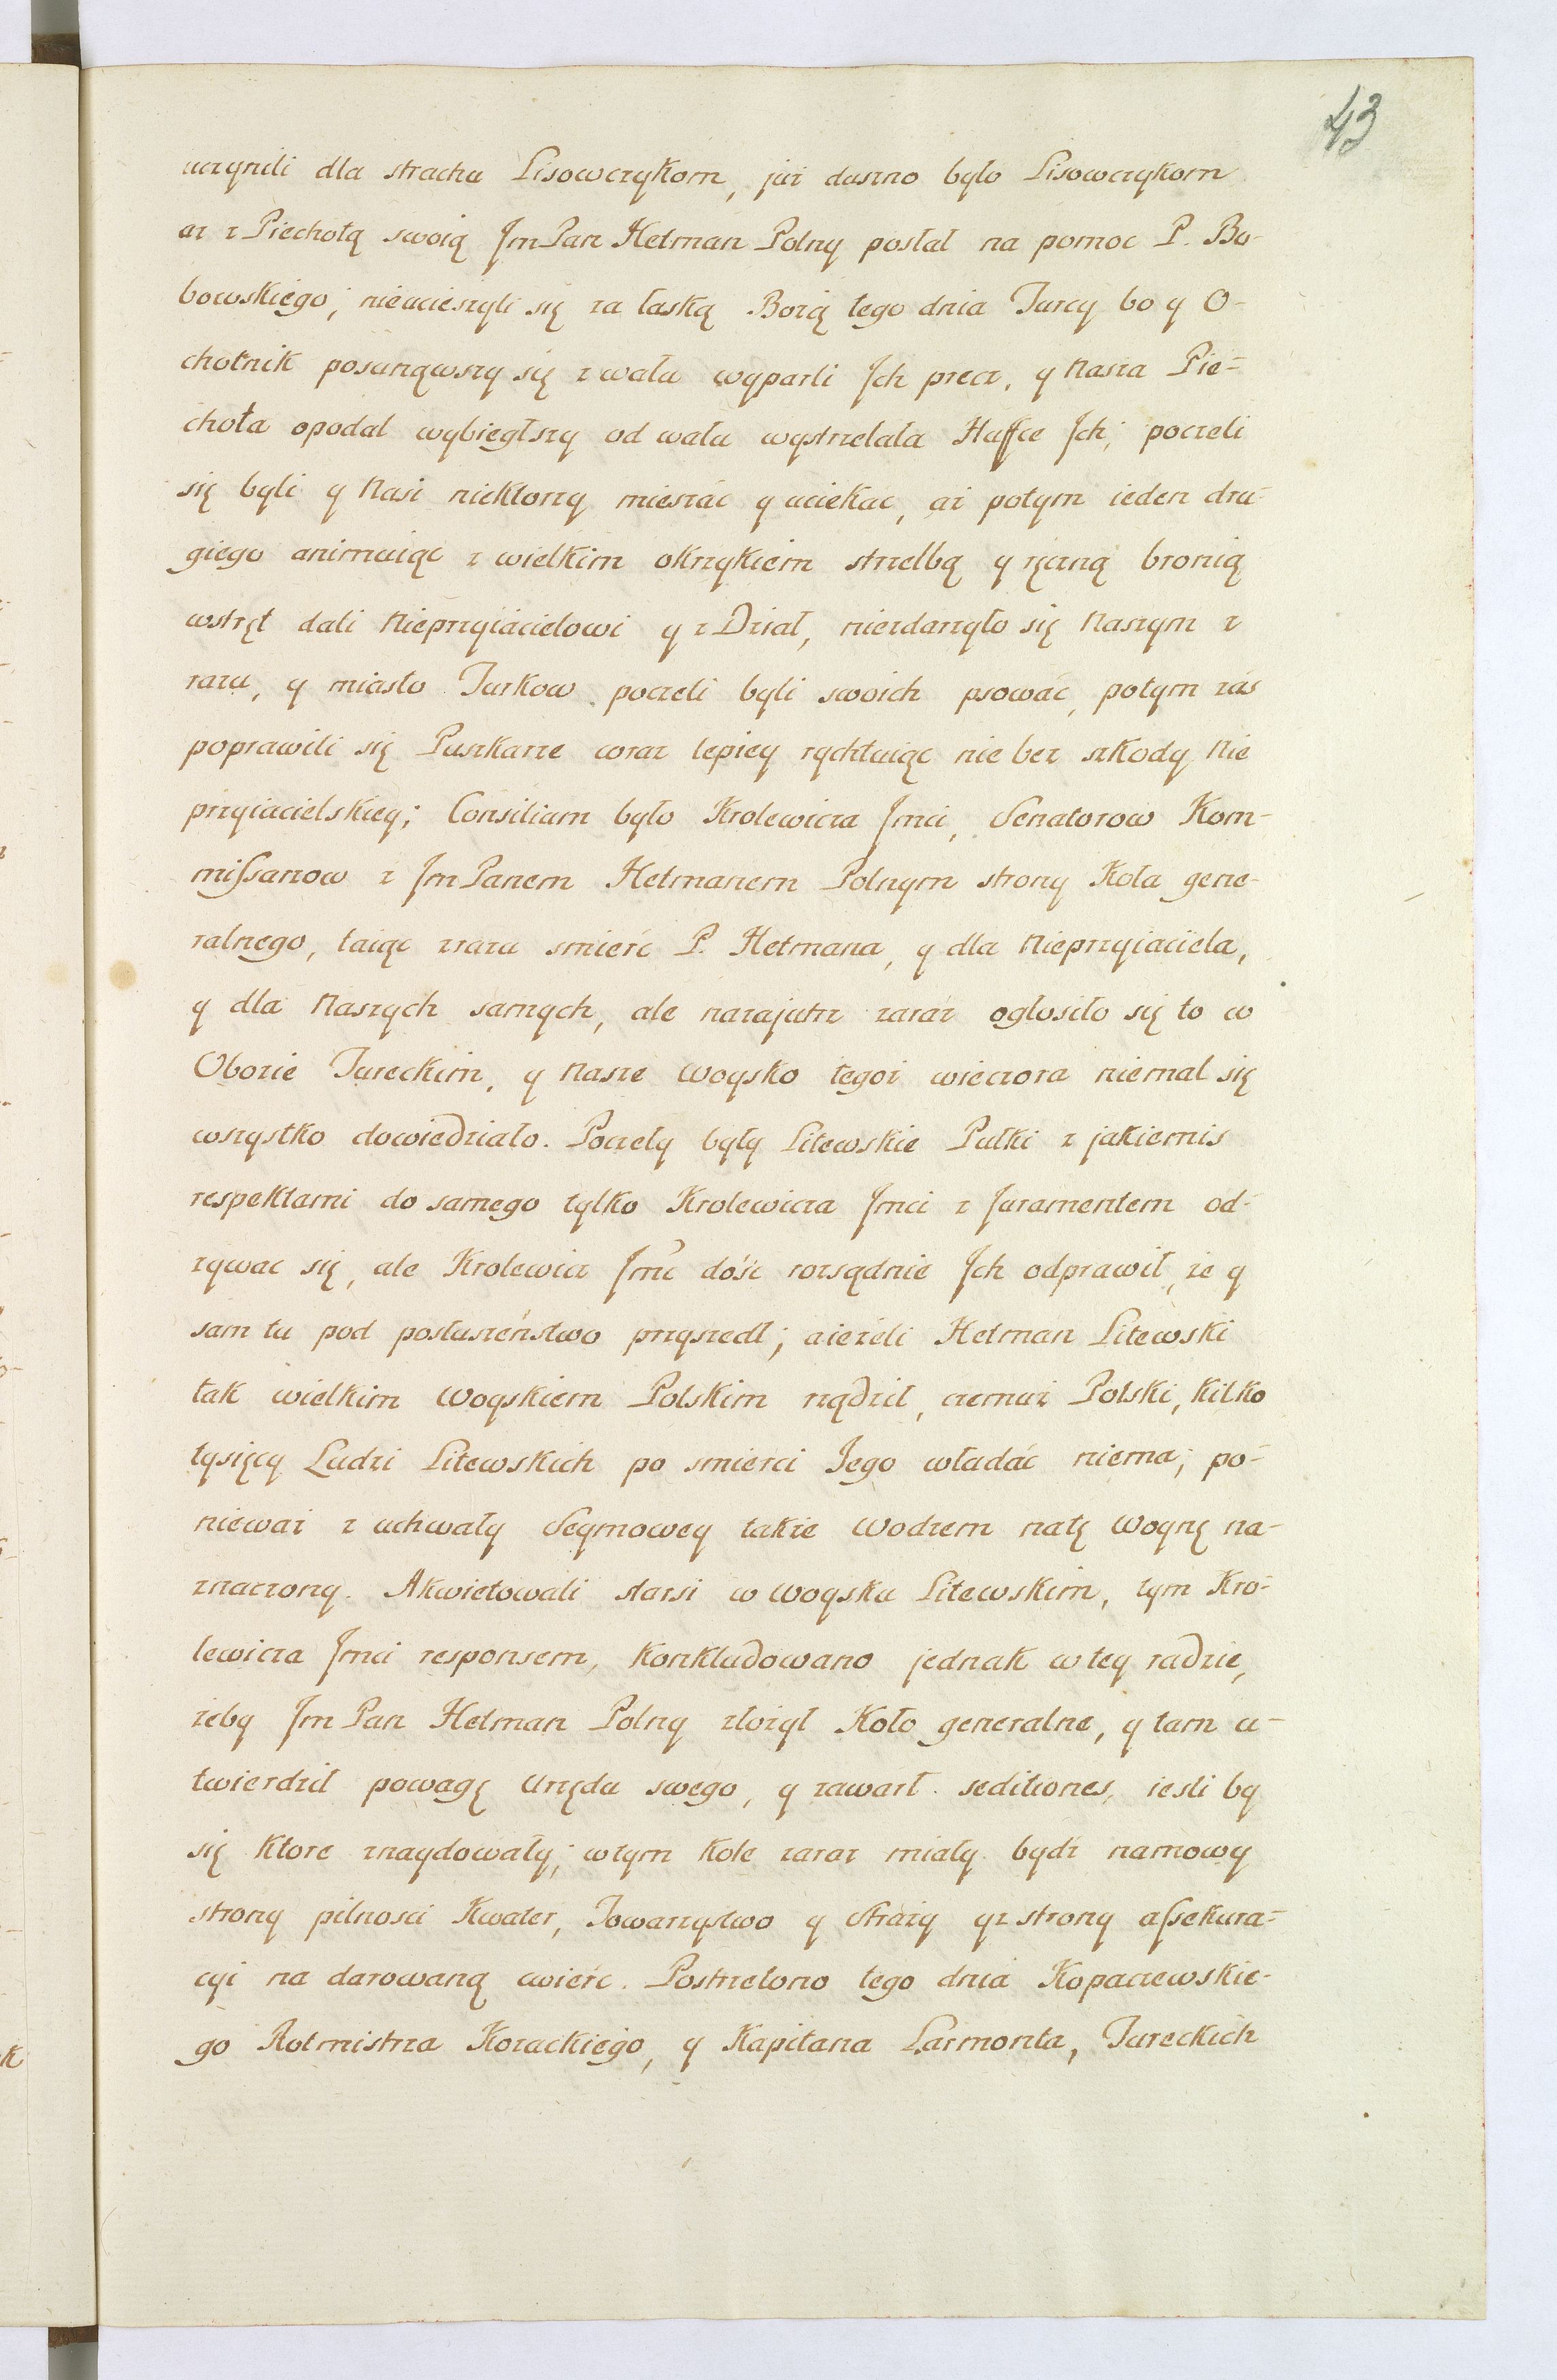 43
uczynili dla strachu Lisowczykom, już duszno było Lisowczykom
az z Piechotą swoią Jm Pan Hetman Polny posłał na pomoc P. Bo-
bowskiego; nieucieszyli się za łaską Bożą tego dnia Turcy bo y O-
chotnik posunąwszy się z wału wyparli Jch precz, y Nasza Pie-
chota opodal wybiegłszy od wału wystrzelała Huffce Jch; poczeli
się byli y Nasi niektorzy mieszać y uciekac, aż potym ieden dru-
giego animuiąc z wielkim okrzykiem strzelbą y ręczną bronią
wstręt dali Nieprzyiacielowi y z Dział, niezdarzyło się Naszym z
razu, y miasto Turkow poczeli byli swoich psować, potym zaś
poprawili się Puszkarze coraz lepiey rychtuiąc nie bez szkody Nie
przyiacielskiey; Consilium było Krolewicza Jmci, Senatorow Kom-
missarzow z Jm Panem Hetmanem Polnym strony Koła gene-
ralnego, taiąc zrazu smierć P. Hetmana, y dla Nieprzyiaciela,
y dla Naszych samych, ale nazajutrz zaraz ogłosiło się to w
Obozie Tureckim, y Nasze Woysko tegoż wieczora niemal się
wszystko dowiedziało. Poczeły były Litewskie Pułki z jakiemis
respektami do samego tylko Krolewicza Jmci z Juramentem od-
zywac się, ale Krolewicz Jmć dość rozsądnie Jch odprawił, że y
sam tu pod posłuszeństwo przyszedł; aieżeli Hetman Litewski
tak wielkim Woyskiem Polskim rządził, czemuż Polski, kilko
tysięcy Ludzi Litewskich po smierci Jego władać niema; po-
niewaz z uchwały Seymowey także Wodzem natę Woynę na-
znaczony. Akwietowali starsi w Woysku Litewskim, tym Kro-
lewicza Jmci responsem, konkludowano jednak w tey radzie,
żeby Jm Pan Hetman Polny złożył Koło generalne, y tam u-
twierdził powagę Urzędu swego, y zawarł seditiones, iesli by
się ktore znaydowały; wtym kole zaraz miały bydz namowy
strony pilnosci Kwater, Towarzystwo y straży yz strony assekura-
cyi na darowaną cwierć. Postrzelono tego dnia Kopaczewskie-
go Rotmistrza Kozackiego, y Kapitana Larmonta, Tureckich